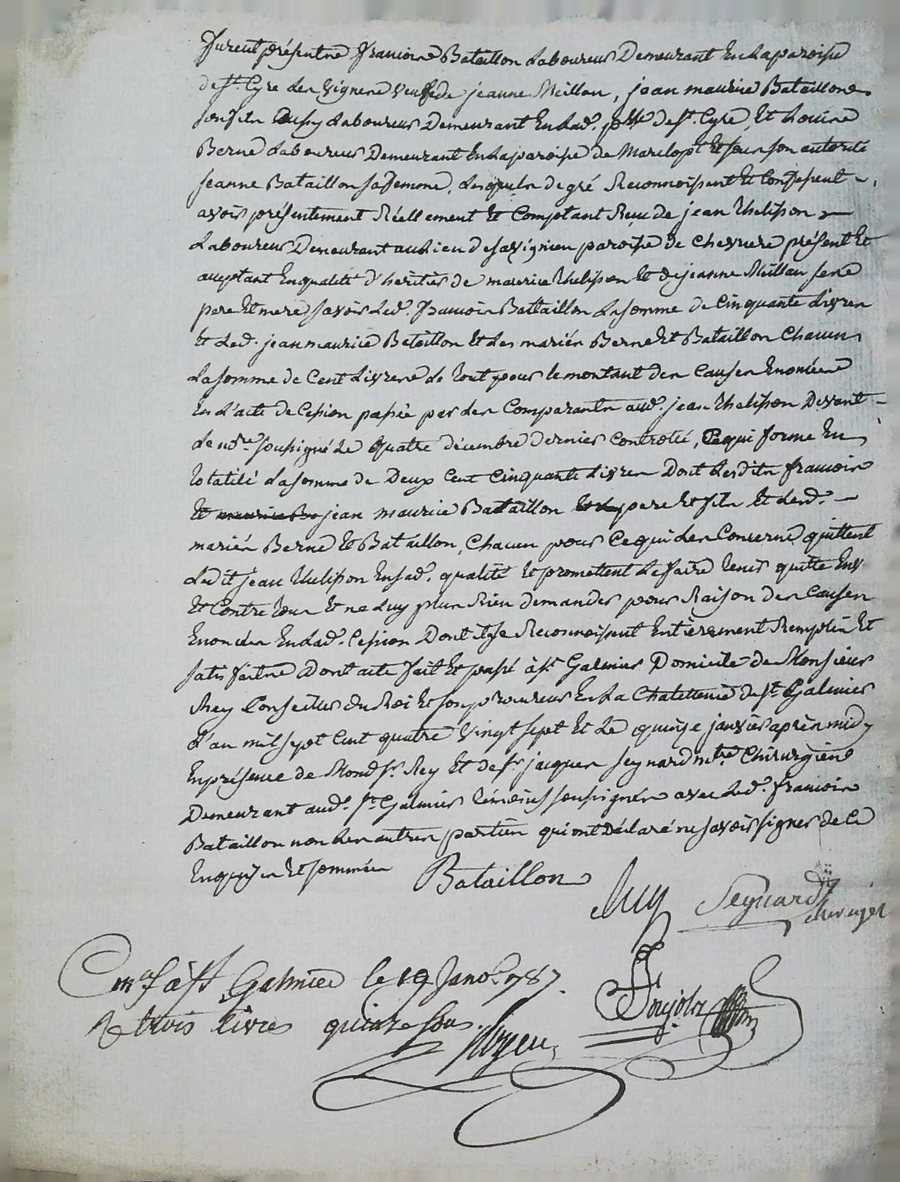 furent présents francois Bataillon Laboureur Demeurant En la paroisse
de st. Cyre les vignes veuf de jeanne Meillon, jean maurice Bataillon
son fils aussy Laboureur Demeurant En lad. psse de st. Cyre, Et Louis
Berne Laboureur Demeurant En la paroisse de Marclopt Et sous son autorité
jeanne Bataillon sa femme, Lesquels de gré Reconnoissent Et Confessent
avoir présentement Réellement Et Comptant Reçu de jean Thelisson
Laboureur Demeurant au Lieu de savignieu paroisse de Chevriere présent Et
acceptant En qualité d'heritier de maurice Thelisson Et de jeanne Meillon ses
pere Et mere savoir Led. francois Bataillon La somme de Cinquante Livres
Et Led. jean maurice Bataillon Et Les mariés Berne Et Bataillon Chacun
La somme de Cent Livres Le tout pour le montant des Causes Enoncées
En L'acte de Cession passée par les Comparants aud. jean Thelisson Devant
Le nore soussigné Le quatre décembre dernier controlé, Ce qui forme En
totalité La somme de Deux Cent Cinquante Livres Dont Lesdits francois
Et jean maurice Bataillon pere Et fils Et Lesd.
mariés Berne Et Bataillon, Chacun pour Ce qui Les Concerne, quittent
Ledit jean Thelisson En sad. qualité Et promettent Le faire tenir quitte Env
Et Contre tous Et ne Luy plus Rien demander pour Raison des Causes
Enoncées En Lad. Cession Dont ils se Reconnoissent Entièrement Remplis Et
satisfaits Dont acte fait Et passé à st. Galmier Domicile de Monsieur
Rey Conseiller du Roi Et son procureur En La Chatellenie de st. Galmier
L'an mil sept Cent quatre vingt sept Et Le quinze janvier après midy
En présence de Mond. sr. Rey Et de sr. jacques seynard mtre Chirurgien
Demeurant aud. st. Galmier témoins soussignés avec Led. francois
Bataillon non Les autres parties qui ont Déclaré ne savoir signer de Ce
Enquises Et sommées
Bataillon
Rey
Seynard
chirurgien
Con. à st Galmier le 19 Janv. 1787.
R trois livres quinze sous.
Pujols